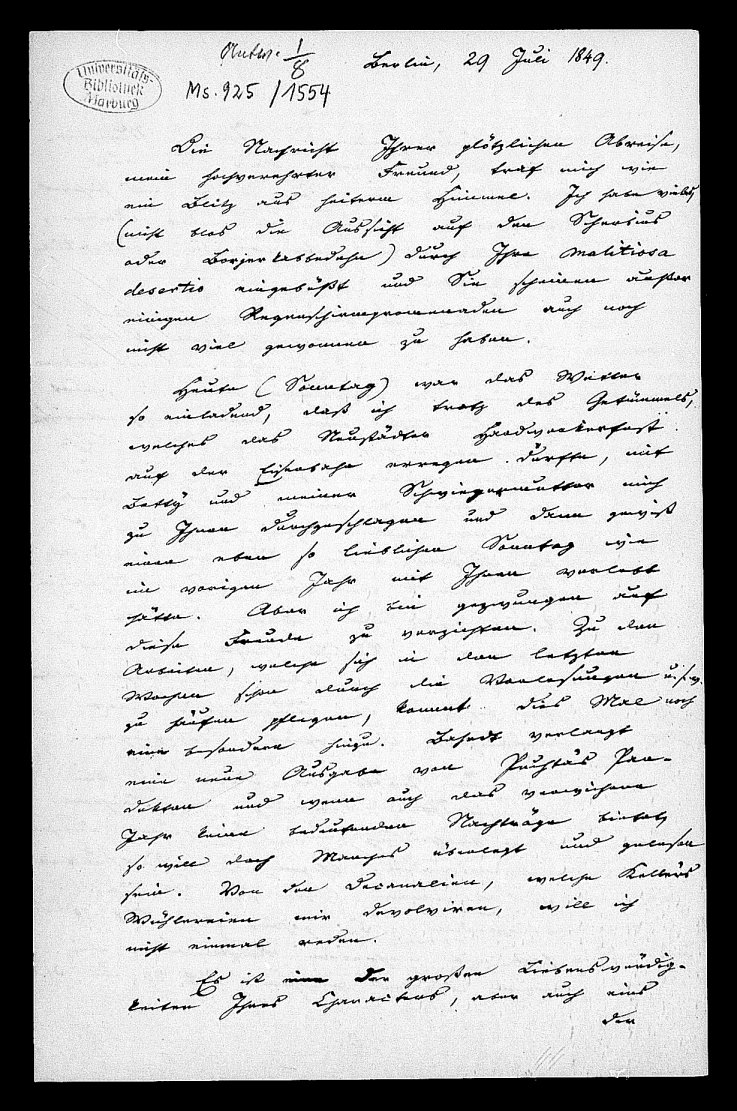 Antw. 1/8
Berlin, 29 Juli 1849.
Universitäts-
Bibliothek
Marburg
Ms. 925 / 1554
Die Nachricht Ihrer plötzlichen Abreise,
mein hochverehrter Freund, traf mich wie
ein Blitz aus heiterm Himmel. Ich habe vieles
(nicht blos die Aussicht auf den
oder ) durch Ihre malitiosa
desertio eingebüßt und Sie scheinen außer
einigen Regenschirmpromenaden auch noch
nicht viel gewonnen zu haben.
Heute (Sonntag) war das Wetter
so einladend, daß ich trotz des Getümmels,
welches das Neustädter Handwerkerfest
auf der Eisenbahn erregen dürfte, mit
Betty und meiner Schwiegermutter mich
zu Ihnen durchgeschlagen und dann gewiß
einen eben so lieblichen Sonntag wie
im vorigen Jahr mit Ihnen verlebt
hätte. Aber ich bin gezwungen auf
diese Freude zu verzichten. Zu den
Arbeiten, welche sich in den letzten
Wochen schon durch die Vorlesungen u.s.w.
zu häufen pflegen, kommt dies Mal noch
eine besondere hinzu. verlangt
eine neue Ausgabe von Puchtas Pan-
dekten und wenn auch das verwichene
Jahr keine bedeutenden Nachträge bietet,
so will doch Manches überlegt und gelesen
sein. Von den Decanalien, welche Kellers
Wühlereien mir devolviren, will ich
nicht einmal reden.
Es ist der großen Liebenswürdig-
keiten Ihres Characters, aber auch eins
der